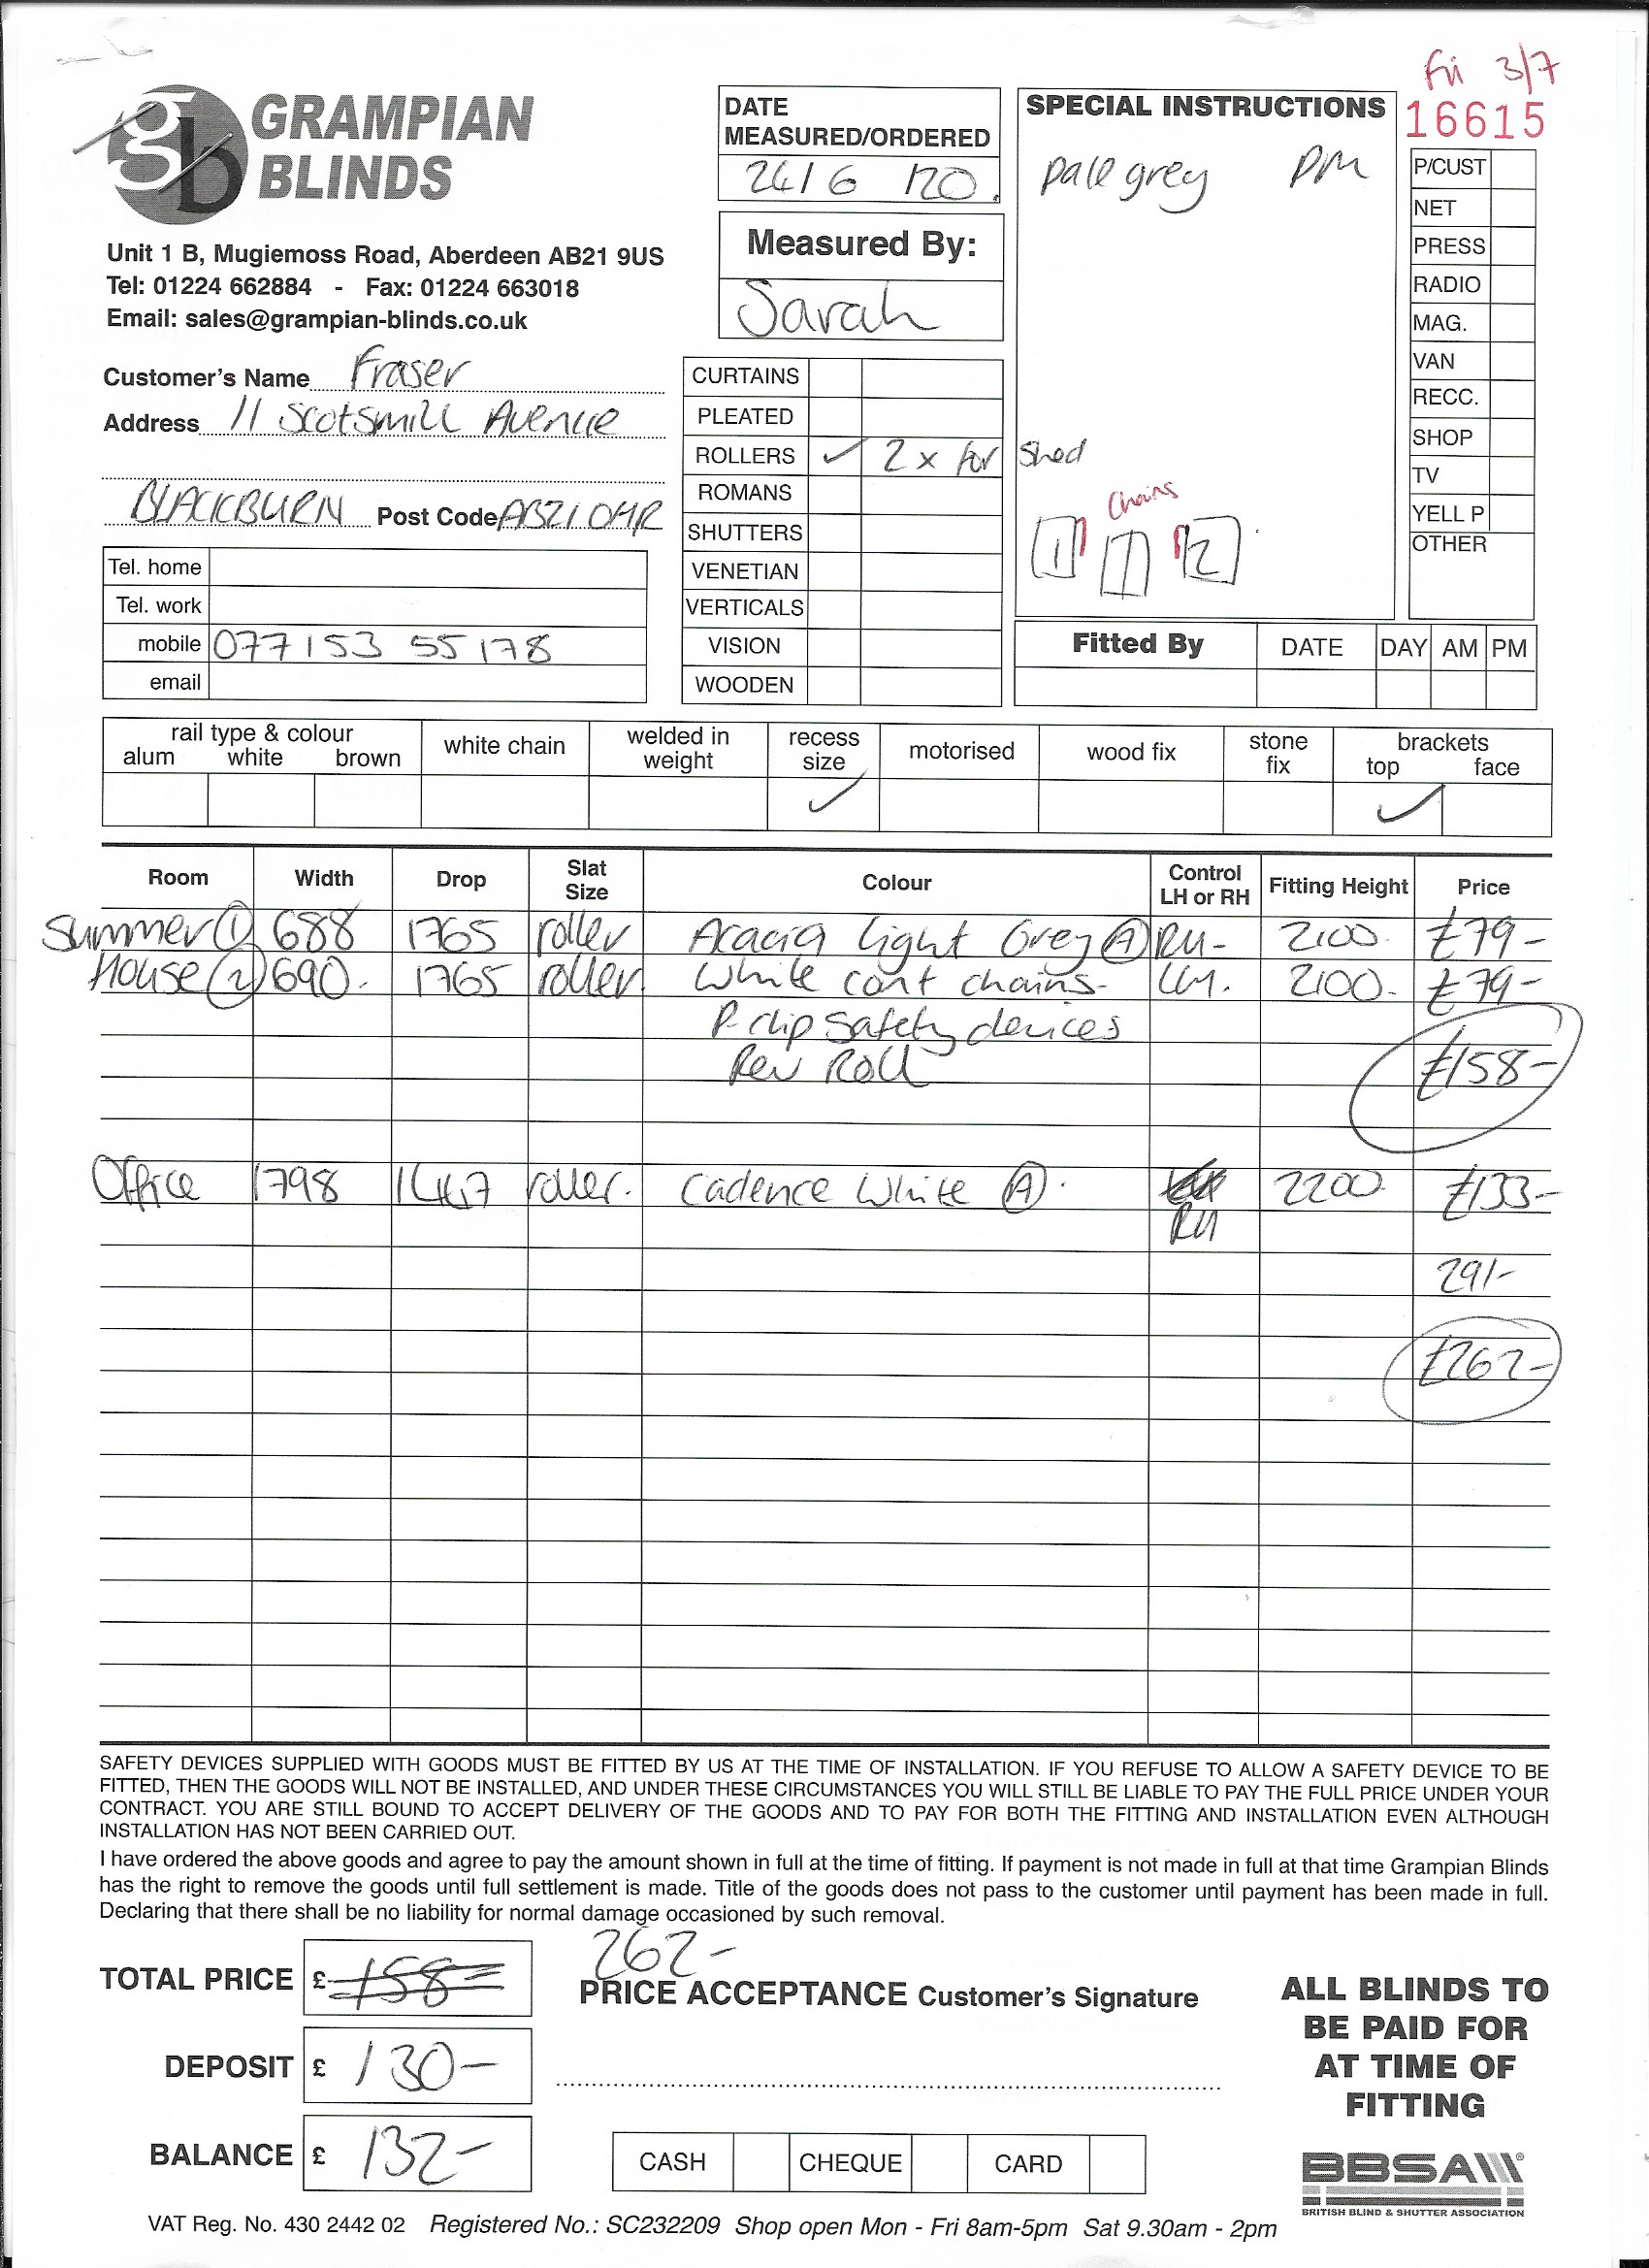 Fri 3/7
16615
gb GRAMPIAN
BLINDS
Unit 1 B, Mugiemoss Road, Aberdeen AB21 9US
Tel: 01224 662884 - Fax: 01224 663018
Email: sales@grampian-blinds.co.uk
DATE
MEASURED/ORDERED
24/6/20.
Measured By:
Sarah
SPECIAL INSTRUCTIONS
pale grey PM
P/CUST
NET
PRESS
RADIO
MAG.
VAN
RECC.
SHOP
TV
YELL P
OTHER
Customer's Name Fraser
Address 11 Scotsmill Avenue
BLACKBURN Post Code AB21 0HR
Tel. home
Tel. work
mobile 077153 55178
email
CURTAINS
PLEATED
ROLLERS ✓ 2 x for shed
ROMANS
SHUTTERS
VENETIAN
VERTICALS
VISION
WOODEN
Chains
1 2
Fitted By DATE DAY AM PM
rail type & colour
alum white brown
white chain
welded in
weight
recess
size
motorised
wood fix
stone
fix
brackets
top face
✓ ✓
Room Width Drop Slat Size Colour Control LH or RH Fitting Height Price
Summer 1 688 1765 roller Acacia Light Grey A RH- 2100. £79-
House 2 690. 1765 roller White cont chains- LH. 2100. £79-
P-clip Safety devices
Rev Roll £158-
Office 1798 1447 roller. Cadence White A. RH 2200. £133-
291-
£262-
SAFETY DEVICES SUPPLIED WITH GOODS MUST BE FITTED BY US AT THE TIME OF INSTALLATION. IF YOU REFUSE TO ALLOW A SAFETY DEVICE TO BE
FITTED, THEN THE GOODS WILL NOT BE INSTALLED, AND UNDER THESE CIRCUMSTANCES YOU WILL STILL BE LIABLE TO PAY THE FULL PRICE UNDER YOUR
CONTRACT. YOU ARE STILL BOUND TO ACCEPT DELIVERY OF THE GOODS AND TO PAY FOR BOTH THE FITTING AND INSTALLATION EVEN ALTHOUGH
INSTALLATION HAS NOT BEEN CARRIED OUT.
I have ordered the above goods and agree to pay the amount shown in full at the time of fitting. If payment is not made in full at that time Grampian Blinds
has the right to remove the goods until full settlement is made. Title of the goods does not pass to the customer until payment has been made in full.
Declaring that there shall be no liability for normal damage occasioned by such removal.
TOTAL PRICE £ 158-
262-
PRICE ACCEPTANCE Customer's Signature
DEPOSIT £ 130-
BALANCE £ 132-
CASH CHEQUE CARD
ALL BLINDS TO
BE PAID FOR
AT TIME OF
FITTING
BBSA
BRITISH BLIND & SHUTTER ASSOCIATION
VAT Reg. No. 430 2442 02 Registered No.: SC232209 Shop open Mon - Fri 8am-5pm Sat 9.30am - 2pm